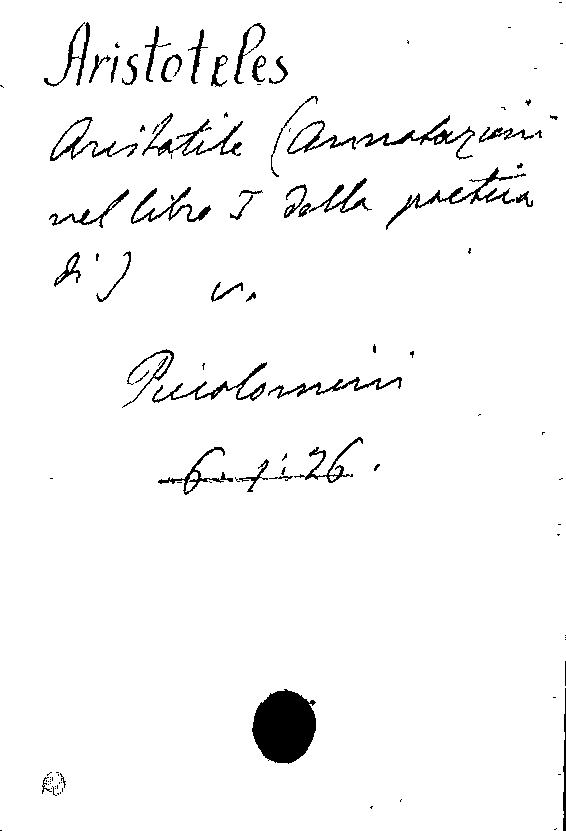 Aristoteles
Aristotile (Annotazioni
nel libro I della poetica
di) v.
Piccolomini
6. 1: 26.